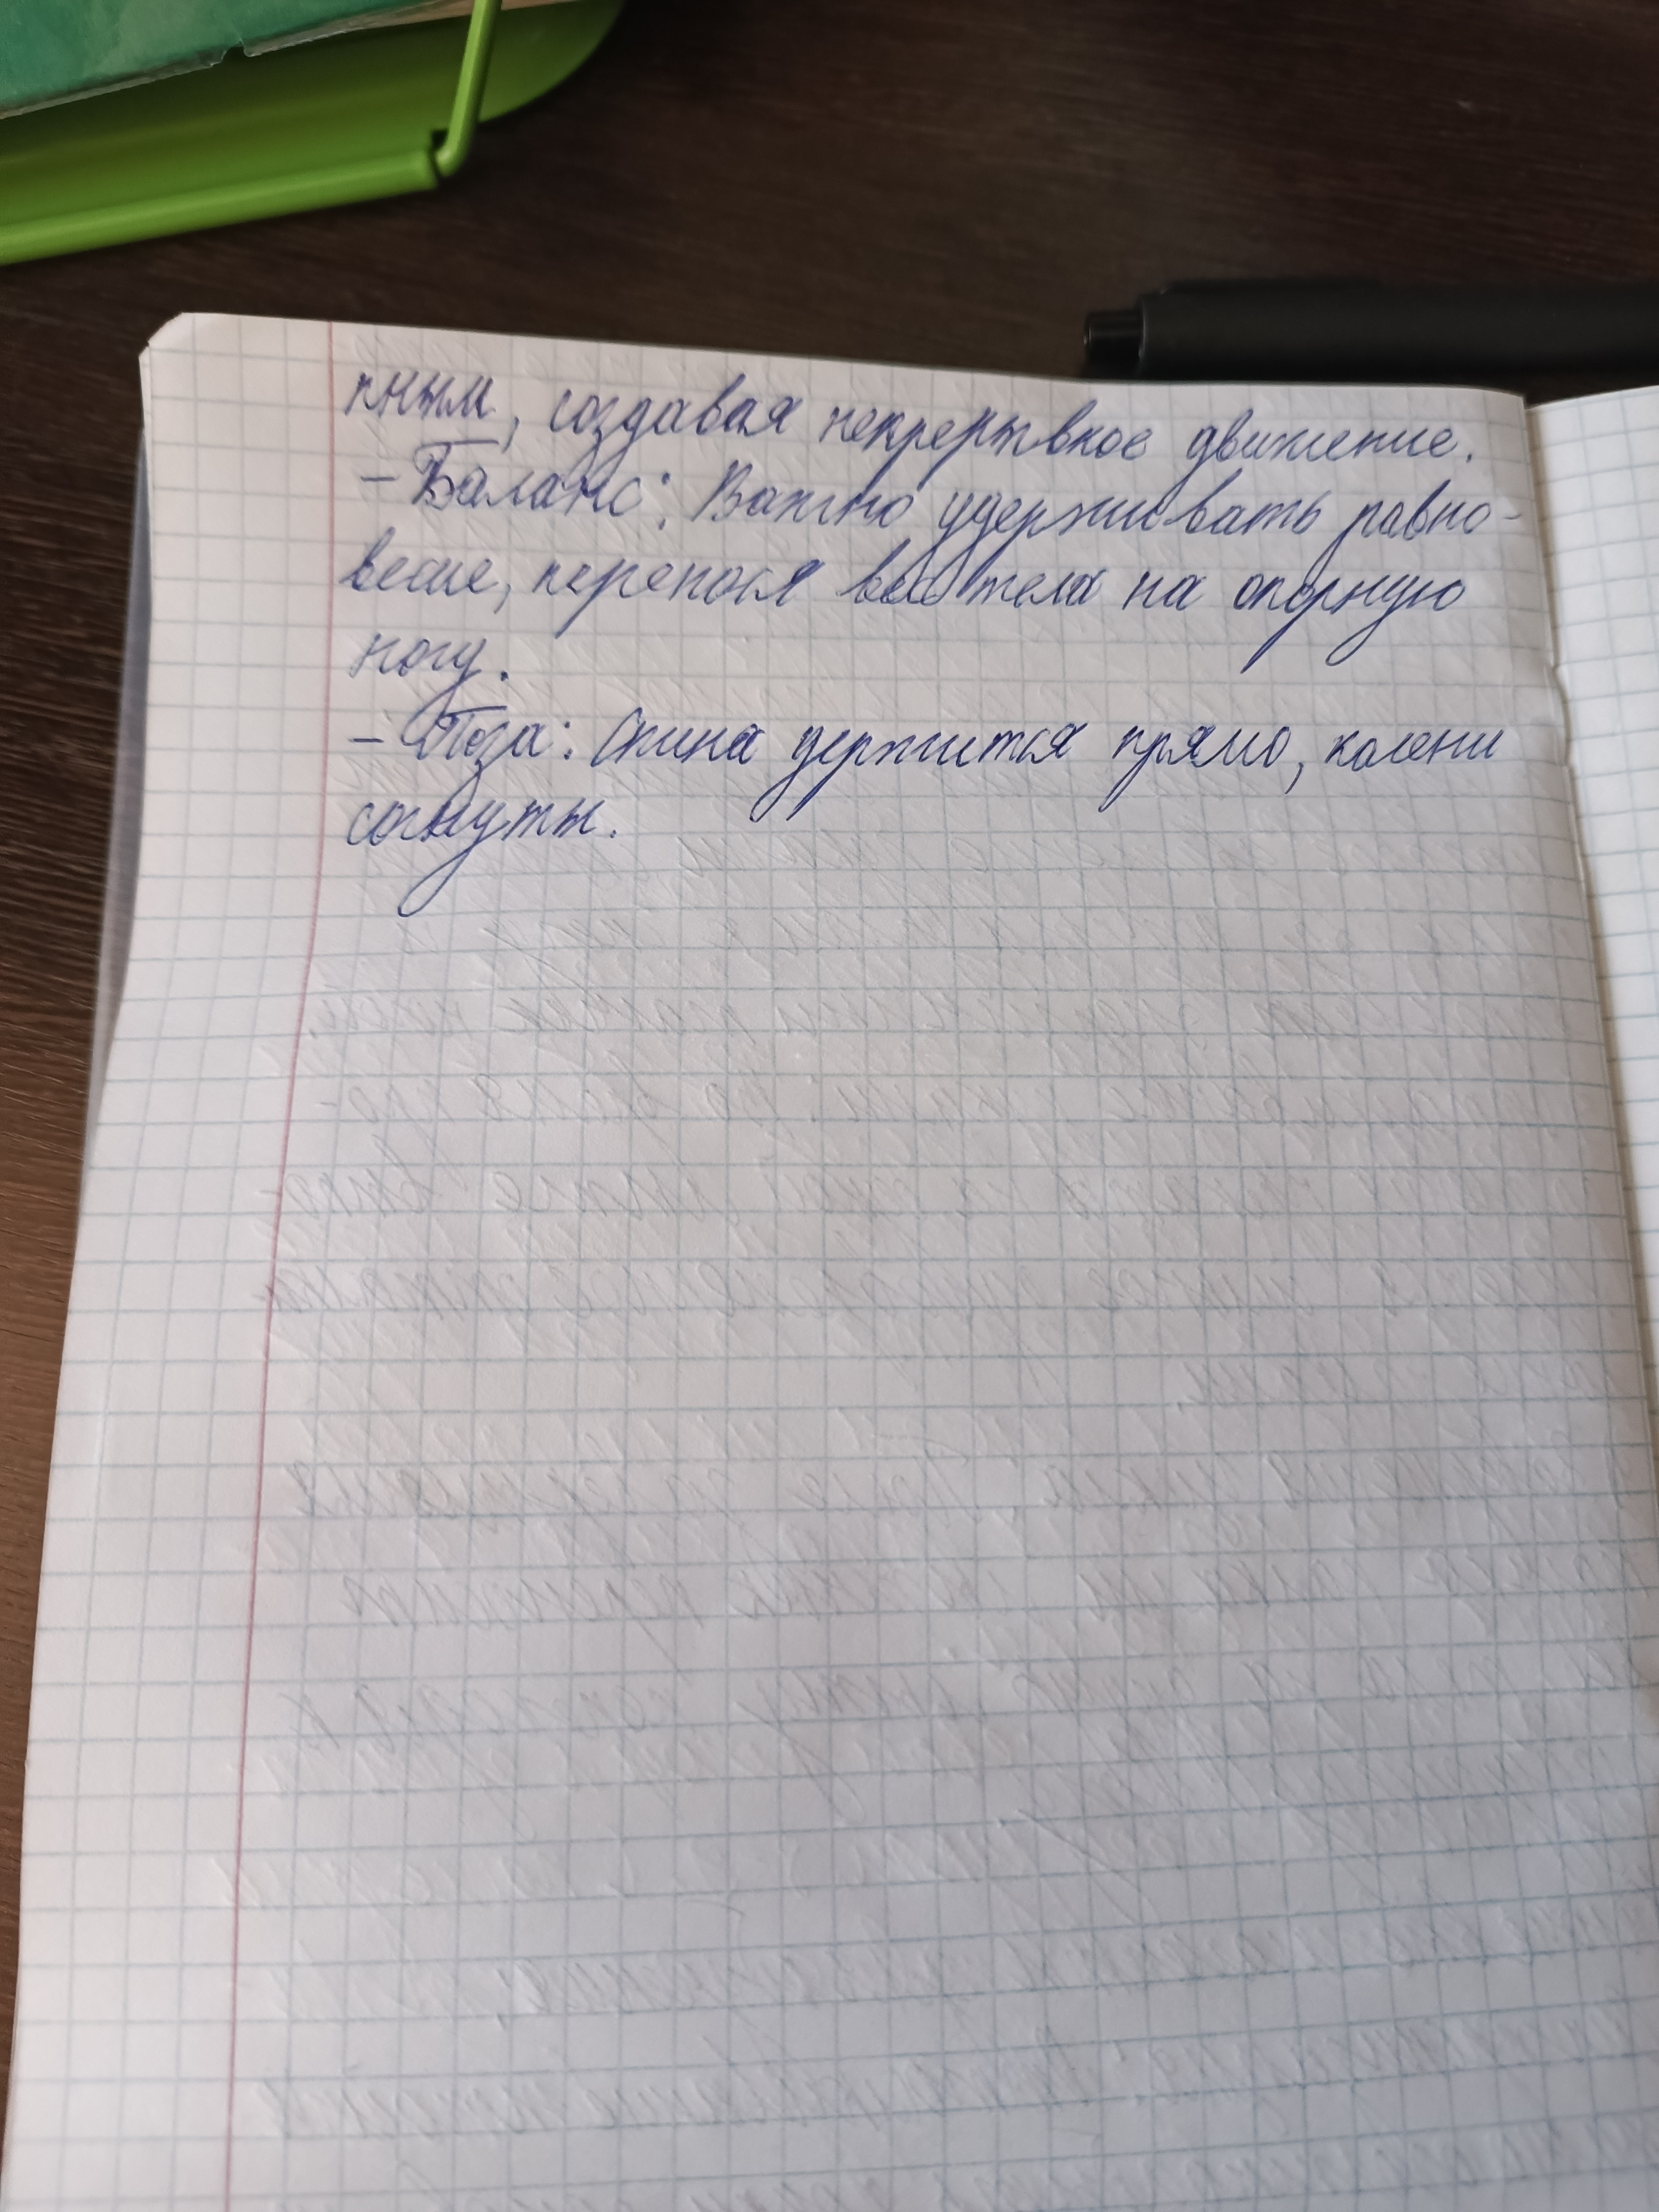 пным, создавая непрерывное движение.
- Баланс: Важно удерживать равно-
весие, перенося вес тела на опорную
ногу.
- Поза: Спина держится прямо, колени
согнуты.